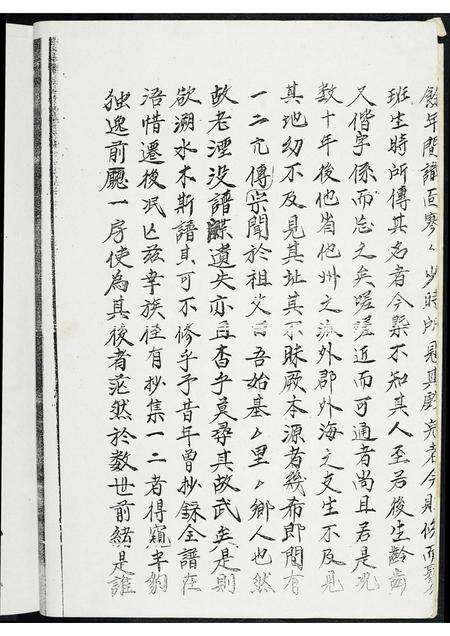 餘年間譜固寥々少時所見其
班生時所傳其名者今槩不知其人至若後生齡齒
又偕字係而忘之矣嗟嗟近而可通者尚且若是况
数十年後他省他州之派外郡外海之支生不及見
其地幼不及見其址其不昧厥本源者幾希即間有
一二亢傳宗聞於祖父曰吾始基々里々鄉人也然
故老湮没譜牒遺失亦且杳乎莫尋其故武矣是則
欲溯水木斯譜其可不修乎予昔年曾抄錄全譜在
浯惜遷後泯亡兹幸族侄有抄集一二者得窺半豹
独逸前廳一房使為其後者茫然於数世前緒是誰